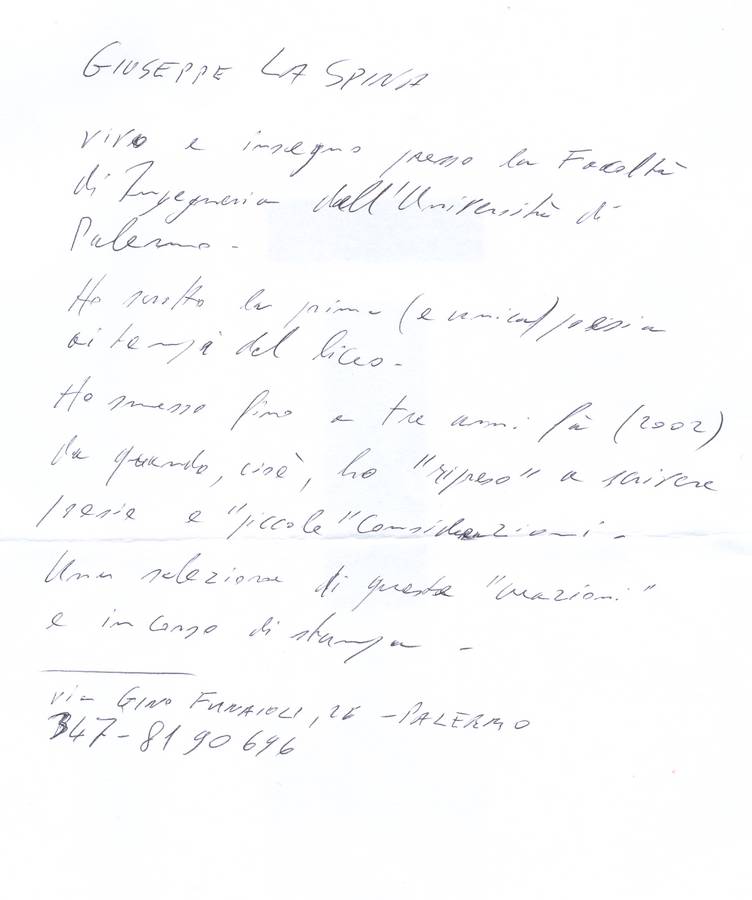 GIUSEPPE LA SPINA
vivo e insegno presso la Facoltà
di Ingegneria dell'Università di
Palermo -
Ho scritto la prima (e unica) poesia
ai tempi del liceo -
Ho smesso fino a tre anni fà (2002)
da quando, cioè, ho "ripreso" a scrivere
poesie e "piccole" considerazioni -
Una selezione di queste "creazioni"
e in corso di stampa -
via GINO FUNAIOLI, 26 - PALERMO
347-8190696